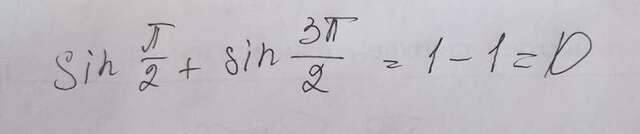 sin π/2 + sin 3π/2 = 1 - 1 = 0